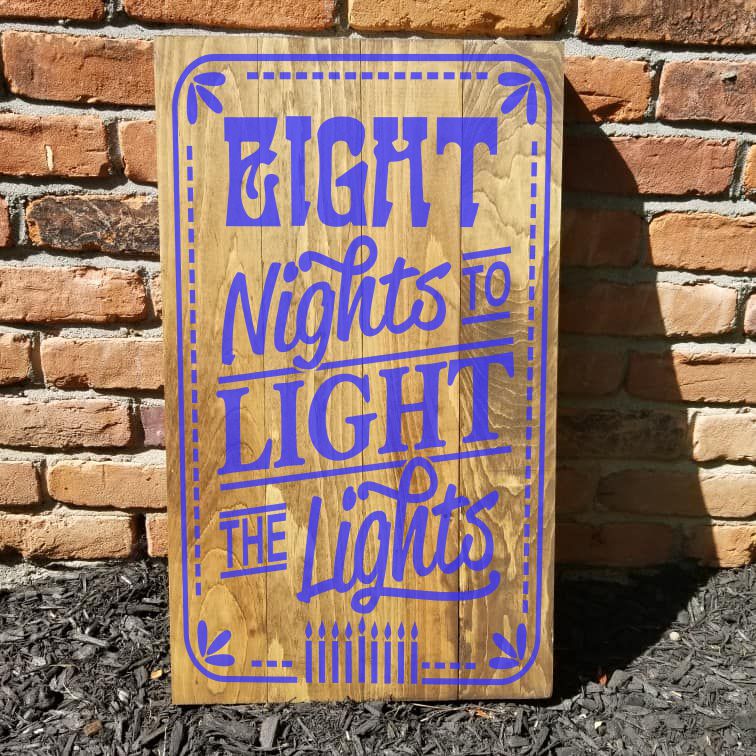 EIGHT
Nights TO
LIGHT
THE Lights